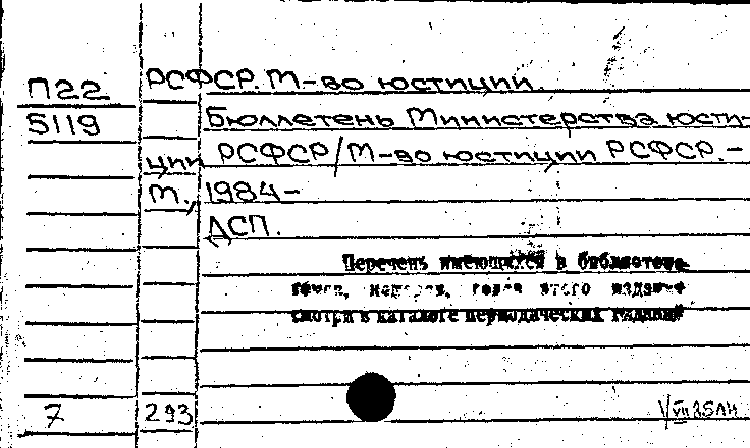 П22 РСФСР. М-во юстиции.
5119 Бюллетень Министерства юсти-
ции РСФСР/М-во юстиции РСФСР. -
М., 1984-
ДСП.
Перечень имеющихся в библиотеке
этого издания
смотри в каталоге периодических изданий
7 293